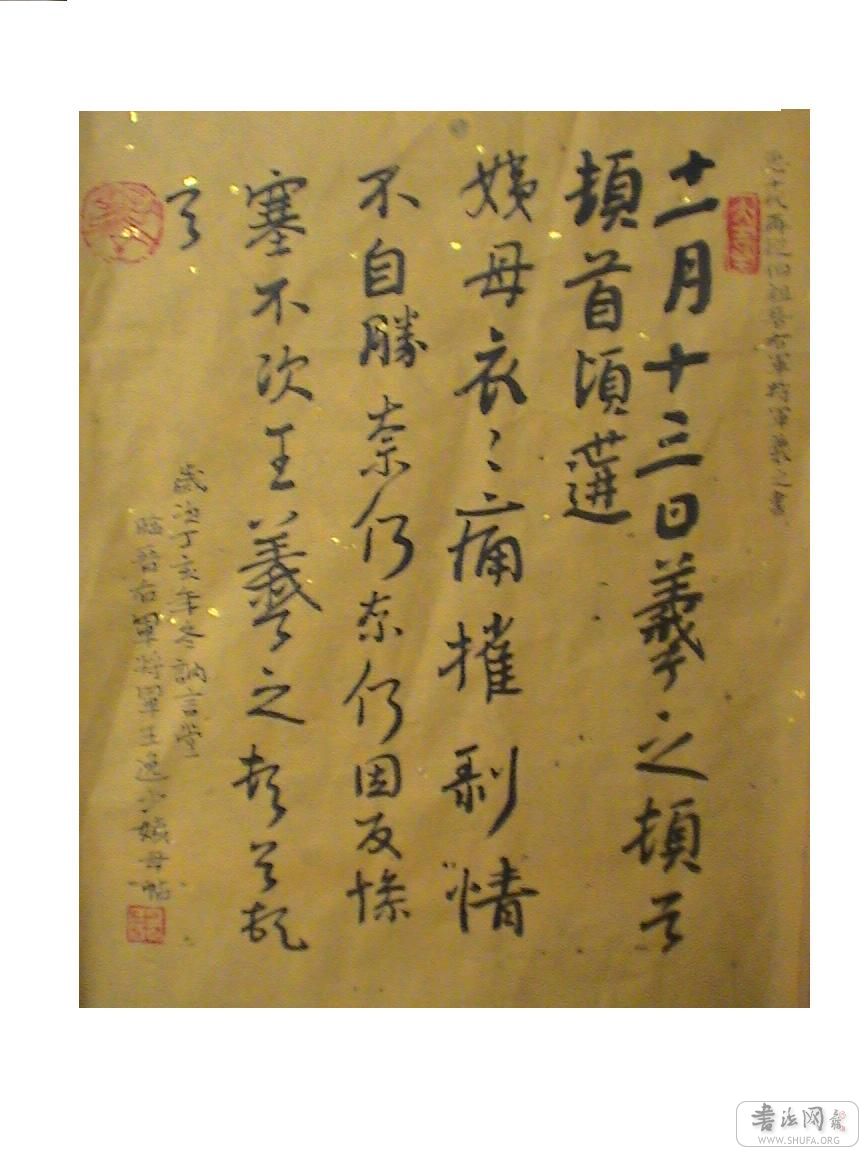 十代再從伯祖晉右軍將軍羲之書
十一月十三日羲之頓首
頓首頃遘
姨母哀〻痛摧剥情
不自勝奈何奈何因反慘
塞不次王羲之頓首頓
首
歲次丁亥年冬訥言堂
臨晉右軍將軍王逸少姨母帖
書法网
WWW.SHUFA.ORG